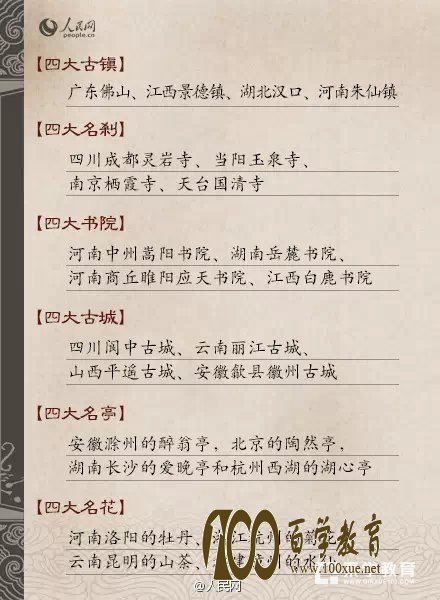 人民网
people.cn
【四大古镇】
广东佛山、江西景德镇、湖北汉口、河南朱仙镇
【四大名刹】
四川成都灵岩寺、当阳玉泉寺、
南京栖霞寺、天台国清寺
【四大书院】
河南中州嵩阳书院、湖南岳麓书院、
河南商丘睢阳应天书院、江西白鹿书院
【四大古城】
四川阆中古城、云南丽江古城、
山西平遥古城、安徽歙县徽州古城
【四大名亭】
安徽滁州的醉翁亭，北京的陶然亭，
湖南长沙的爱晚亭和杭州西湖的湖心亭
【四大名花】
河南洛阳的牡丹、浙江杭州的菊花
云南昆明的山茶、 漳州的水仙
100 百学教育
www.100xue.net
@人民网